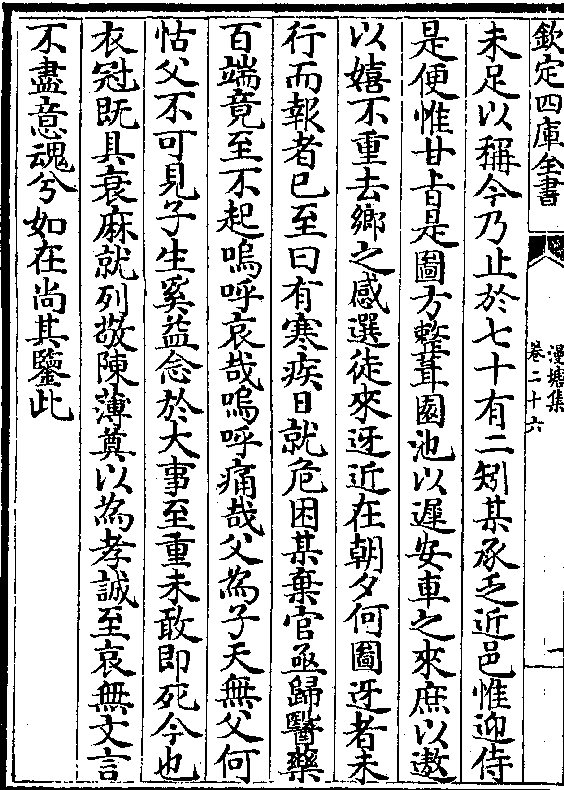 欽定四庫全書
漫塘集
卷二十六
一
未足以稱今乃止於七十有二矧某承乏近邑惟迎侍
是便惟甘旨是圖方整葺園池以遲安車之來庶以遨
以嬉不重去鄉之感選徒來迓近在朝夕何圖迓者未
行而報者已至曰有寒疾日就危困某棄官亟歸醫藥
百端竟至不起嗚呼哀哉嗚呼痛哉父為子天無父何
怙父不可見子生奚益念於大事至重未敢即死今也
衣冠既具衰麻就列敬陳薄奠以為孝誠至哀無文言
不盡意魂兮如在尚其鑒此